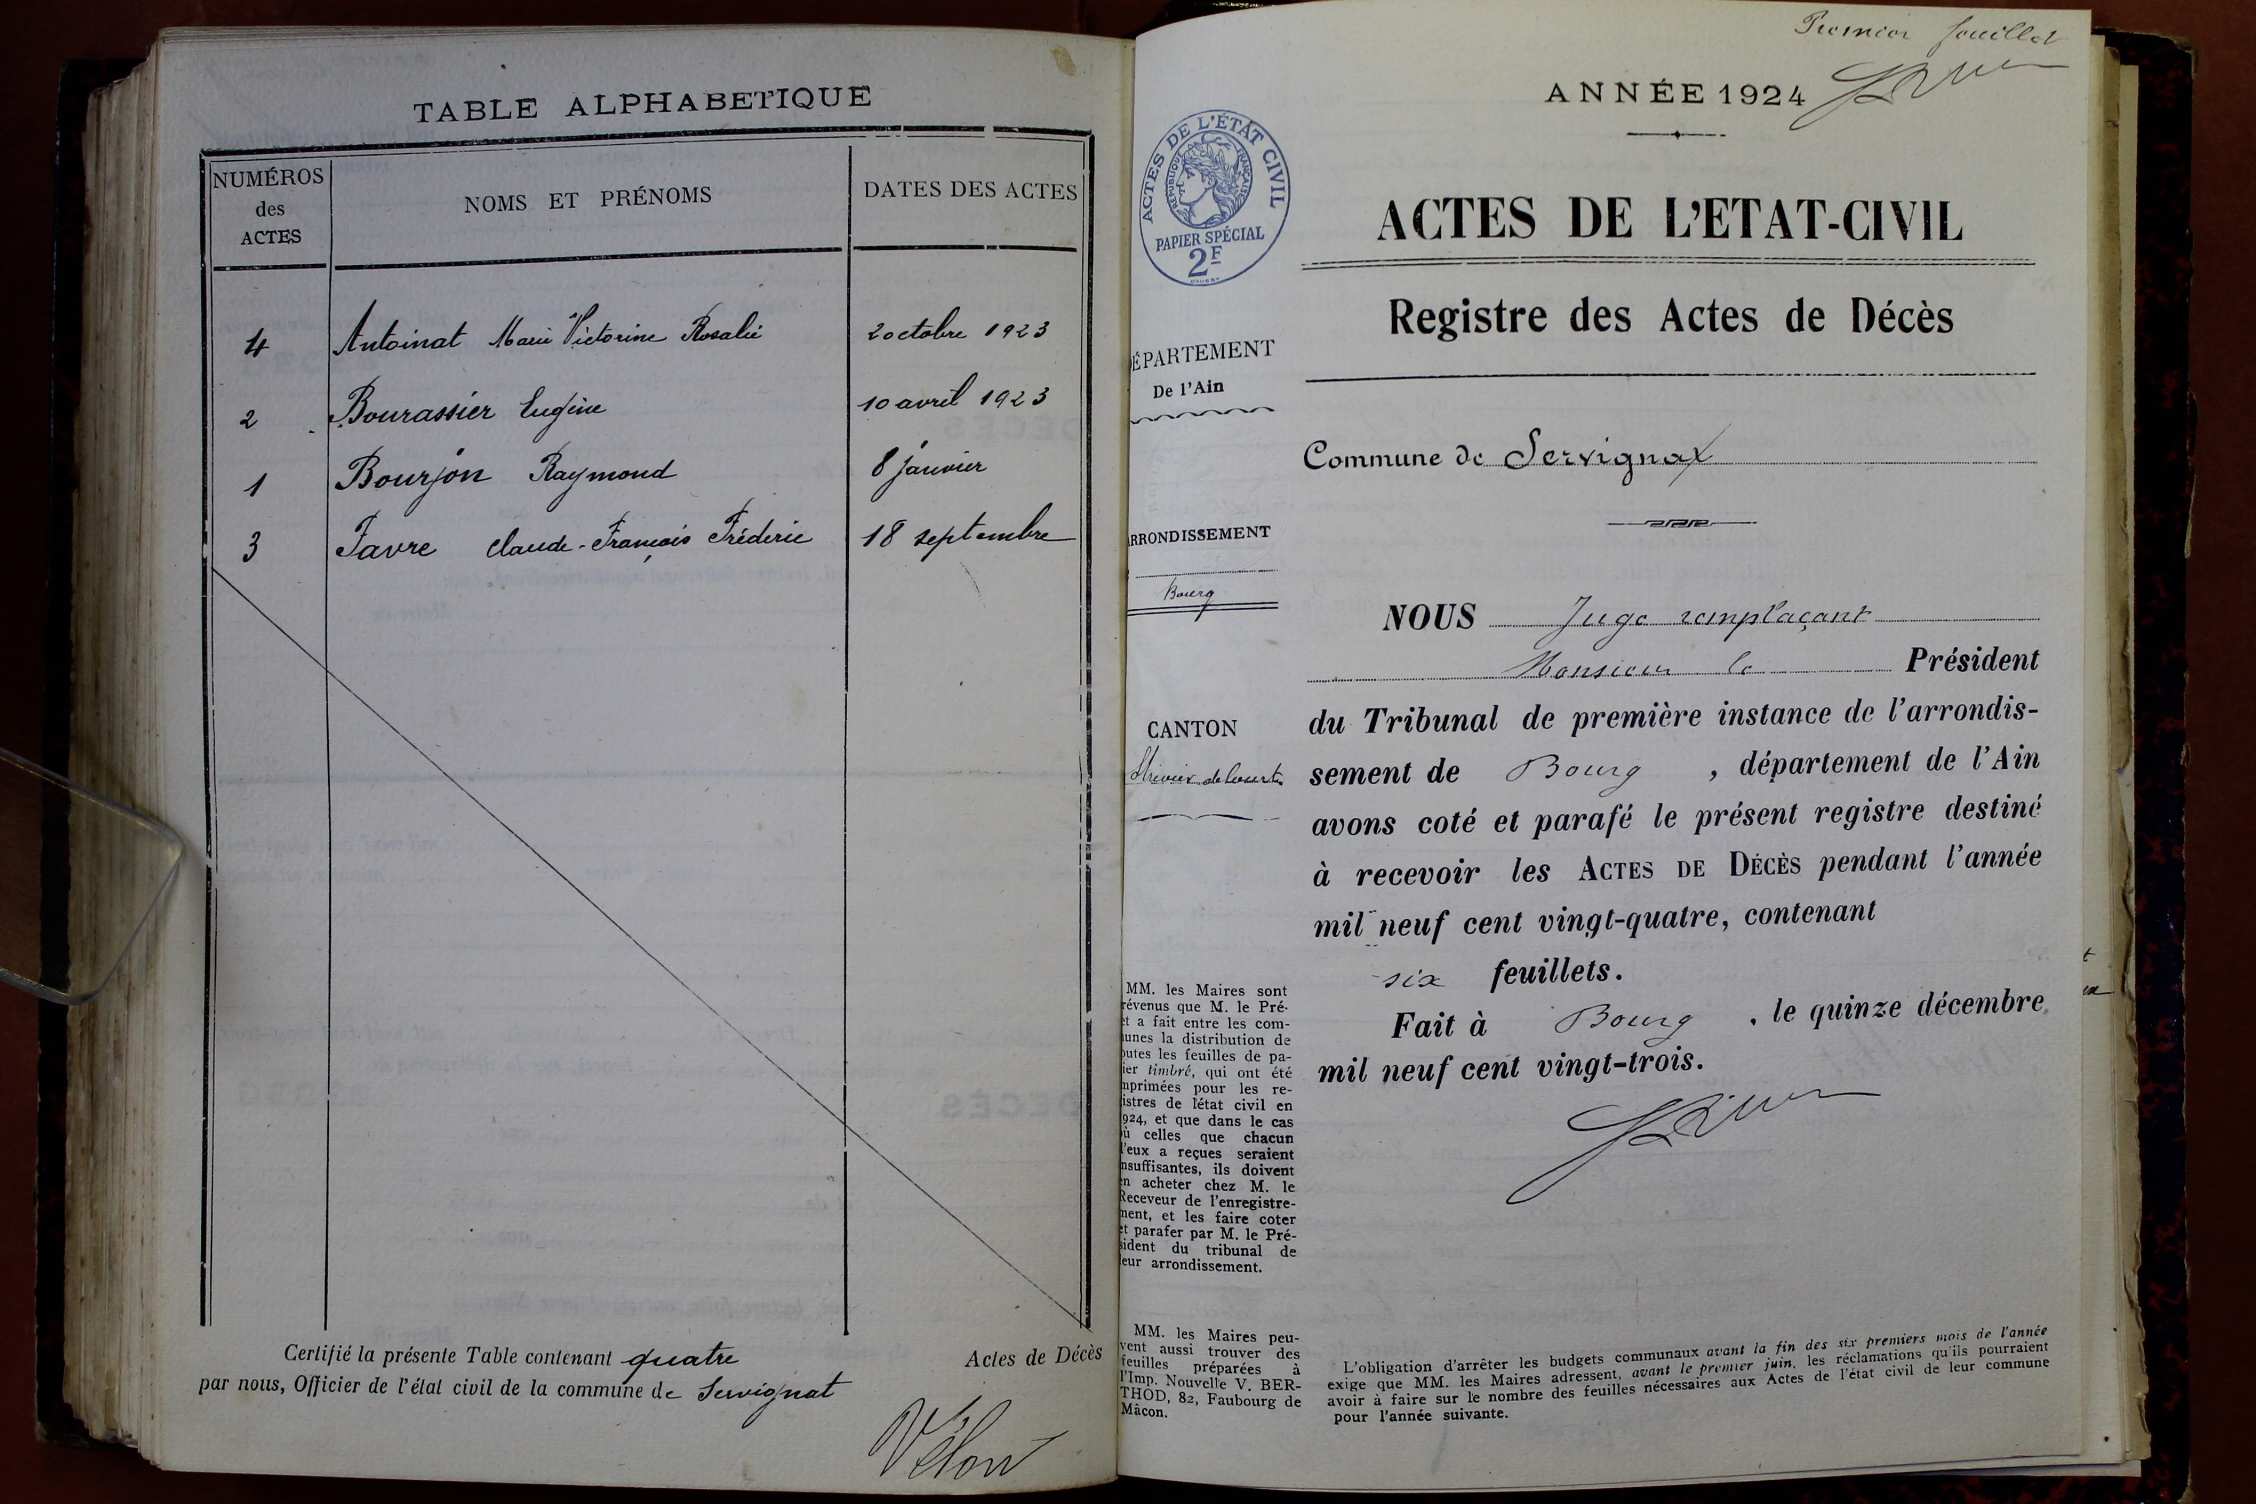 TABLE ALPHABETIQUE
NUMÉROS des ACTES
NOMS ET PRÉNOMS
DATES DES ACTES
4 Antoinat Marie Victorine Rosalie 2 octobre 1923
2 Bourassier Eugène 10 avril 1923
1 Bourjon Raymond 8 janvier
3 Favre Claude-François Fréderic 18 septembre
Certifié la présente Table contenant quatre Actes de Décès
par nous, Officier de l'état civil de la commune de Servignat
Premier feuillet
ANNÉE 1924
ACTES DE L'ÉTAT CIVIL
RÉPUBLIQUE FRANÇAISE
PAPIER SPÉCIAL
2F
ACTES DE L'ETAT-CIVIL
Registre des Actes de Décès
ÉPARTEMENT
De l'Ain
Commune de Servignat
RRONDISSEMENT
Bourg
CANTON
de Courtes
NOUS Juge remplaçant
Monsieur le Président
du Tribunal de première instance de l'arrondis-
sement de Bourg, département de l'Ain
avons coté et parafé le présent registre destiné
à recevoir les ACTES DE DÉCÈS pendant l'année
mil neuf cent vingt-quatre, contenant
six feuillets.
Fait à Bourg, le quinze décembre
mil neuf cent vingt-trois.
MM. les Maires sont
révenus que M. le Pré-
et a fait entre les com-
unes la distribution de
outes les feuilles de pa-
ier timbré, qui ont été
mprimées pour les re-
istres de l'état civil en
924, et que dans le cas
ù celles que chacun
l'eux a reçues seraient
nsuffisantes, ils doivent
en acheter chez M. le
Receveur de l'enregistre-
ment, et les faire coter
et parafer par M. le Pré-
sident du tribunal de
leur arrondissement.
MM. les Maires peu-
vent aussi trouver des
feuilles préparées à
l'Imp. Nouvelle V. BER-
THOD, 82, Faubourg de
Mâcon.
L'obligation d'arrêter les budgets communaux avant la fin des six premiers mois de l'année
exige que MM. les Maires adressent, avant le premier juin, les réclamations qu'ils pourraient
avoir à faire sur le nombre des feuilles nécessaires aux Actes de l'état civil de leur commune
pour l'année suivante.